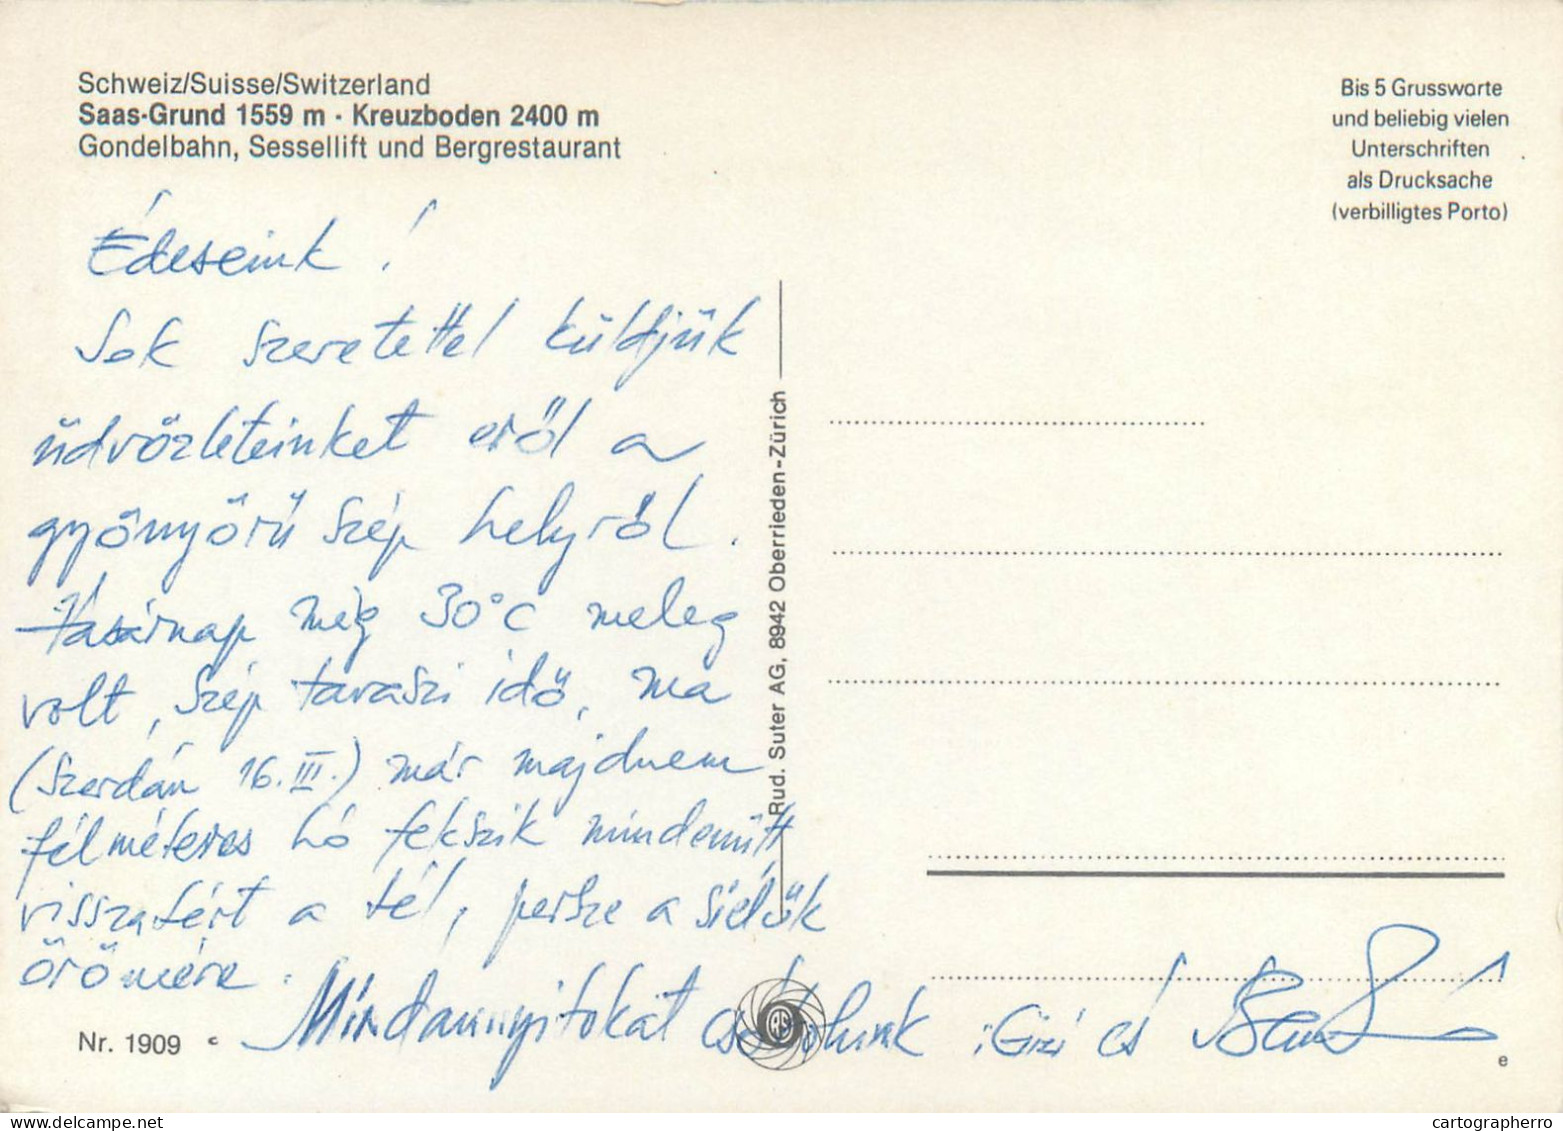 Schweiz/Suisse/Switzerland
Saas-Grund 1559 m · Kreuzboden 2400 m
Gondelbahn, Sessellift und Bergrestaurant
Bis 5 Grussworte
und beliebig vielen
Unterschriften
als Drucksache
(verbilligtes Porto)
Édeseink!
Sok szeretettel küldjük
üdvözleteinket eről a
gyönyörű szép helyről.
Vasárnap még 30°C meleg
volt, szép tavaszi idő, ma
(szerdán 16.III.) már majdnem
félméteres hó fekszik mindenütt,
visszatért a tél, persze a sielők
örömére.
Mindannyitokat csókolunk: Gizi és
Rud. Suter AG, 8942 Oberrieden-Zürich
Nr. 1909 c
e
cartographerro